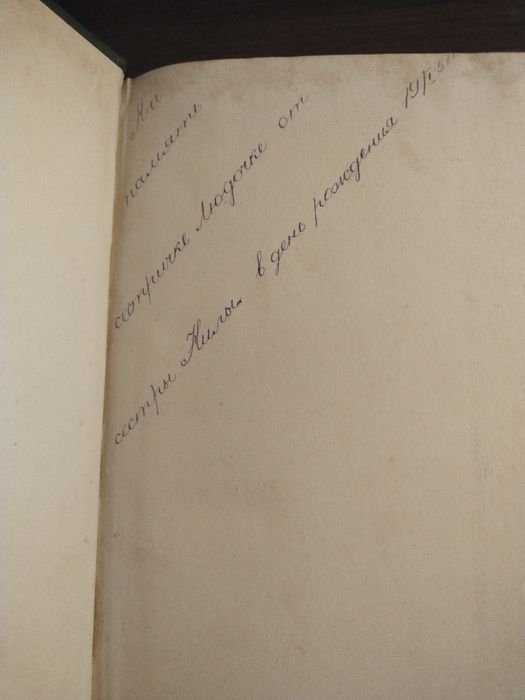 На
память
сестричке Людочке от
сестры Нилы. в день рождения 19/I